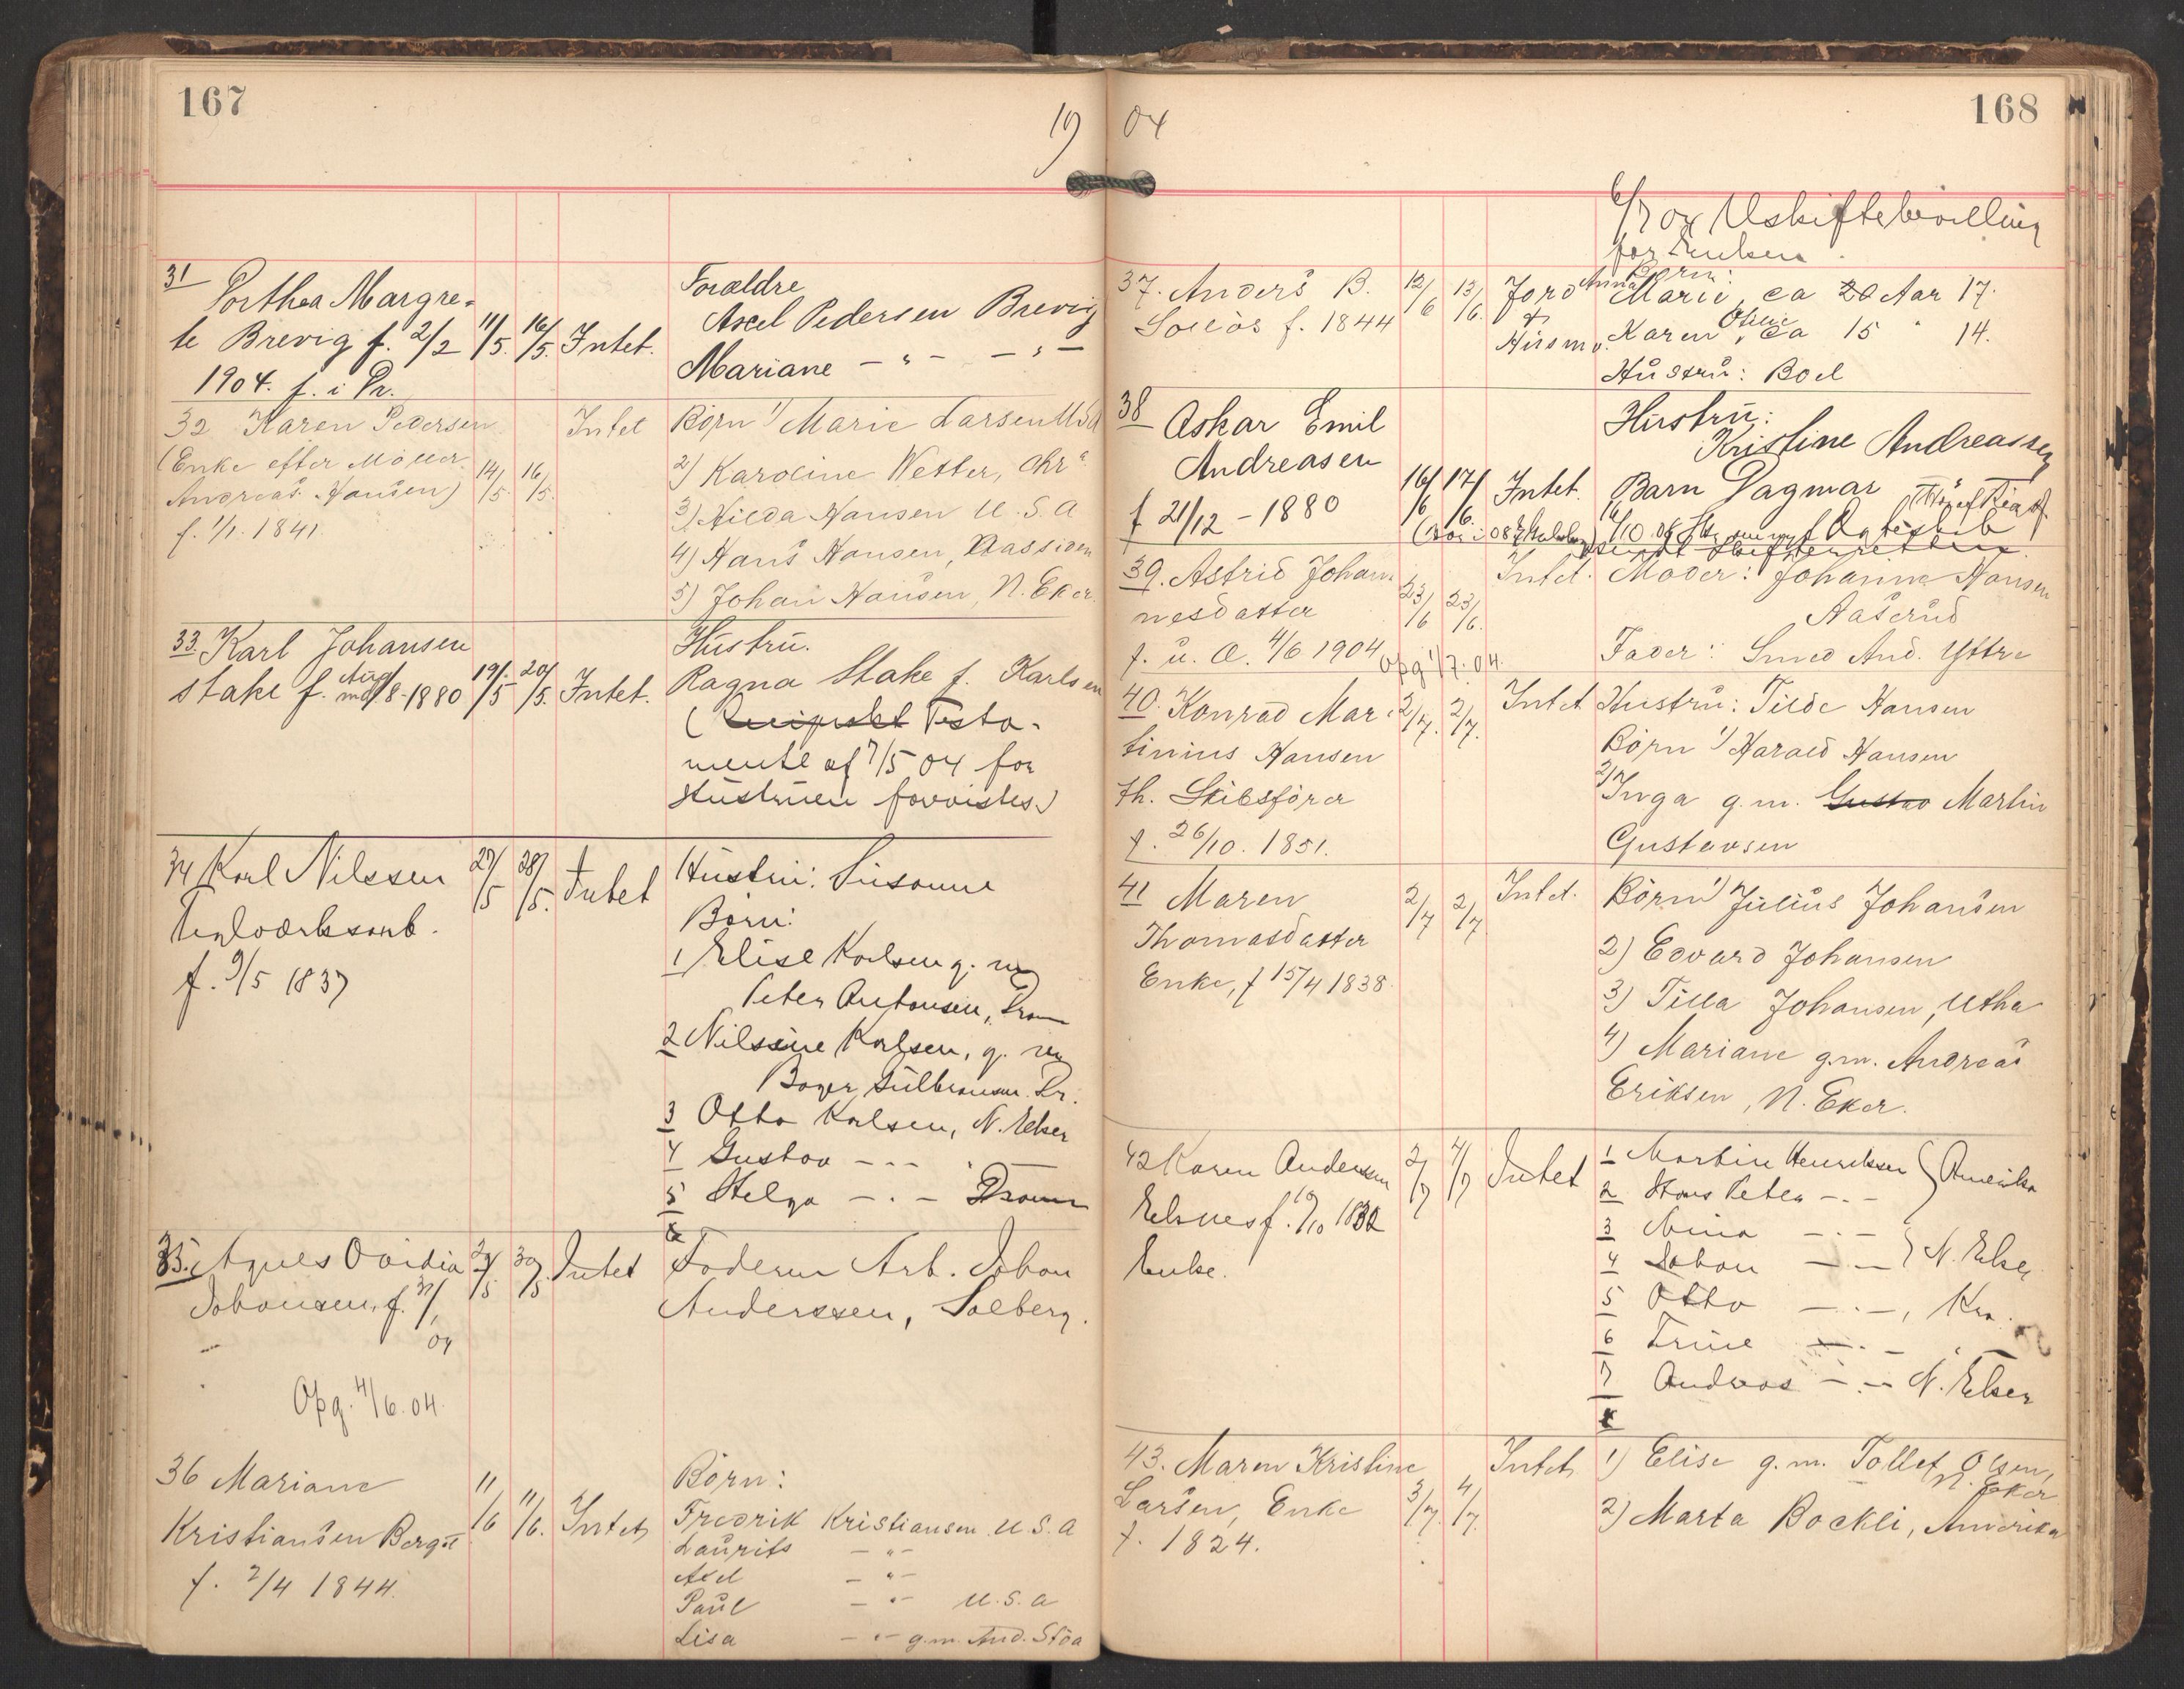 167
19
31
Porthea Margre-
te Brevig f. 2/2 11/5. 16/5. Intet.
1904. f. i Dr.
Forældre
Axel Pedersen Brevig
Mariane — " — — " —
32 Karen Pedersen
(Enke efter Möller
Andreas Hansen) 14/5. 16/5.
f. 1/1. 1841.
Intet
Börn 1) Marie Larsen USA
2) Karoline Wetter, Chra
3) Hilda Hansen U.S.A
4) Hans Hansen, Aassiden
5) Johan Hansen, N. Eker.
33. Karl Johansen
Stake f. 1/8-1880 19/5 20/5. Intet.
Hustru.
Ragna Stake f. Karlsen
( Testa-
mente af 7/5 04 for
Hustruen forevistes.)
34 Karl Nilssen 27/5 28/5. Intet
Teglværksarb.
f. 9/5 1837
Hustru: Susanne
Börn:
1 Elise Karlsen g. m
Peter Antonsen, Dram
2 Nilssine Karlsen, g. m
Gulbransen Dr.
3 Otto Karlsen, N. Eker
4 Gustav - - -
5 Helga - . - Dramm
35. Agnes Ovidia 30/5. Intet
Johansen, f.
04
Faderen Arb. Johan
Anderssen, Solberg.
Opg. 4/6.04.
36 Mariane
Kristiansen Berget 11/6 11/6. Intet
f. 2/4 1844.
Börn:
Fredrik Kristiansen U.S.A
Laurits — " —
Axel — " —
Paul — " — U.S.A
Lisa — " — g.m. And. Stöa
04
168
6/7 04 Uskiftebevilling
for Enken.
37. Anders B. 12/6 13/6. Jord
Solløs f. 1844
&
Husm.
Börn:
Anna
Marie, ca 20 Aar 17.
Oline
Karen, ca 15 " 14.
Hustru: Boel
38
Oskar Emil
Andreasen
f 21/12 - 1880 16/6 17/6. Intet.
Hustru:
Kristine Andreassen
Barn Dagmar
39. Astrid Johan
nesdatter 23/6 23/6.
f. u. Æ. 4/6 1904
Opg 1/7.04.
Intet. Moder: Johanne Hansen
Aaserud
Fader: Smed And. Yttre
40. Konrad Mar- 2/7. 2/7. Intet
tinius Hansen
fh. Skibsförer
f. 26/10. 1851.
Hustru: Tilde Hansen
Börn 1) Harald Hansen
2) Inga g.m. Gustav Martin
Gustavsen
41 Maren 2/7 2/7 Intet.
Thomasdatter
Enke, f 15/4 1838.
Börn 1) Julius Johansen
2) Edvard Johansen
3) Tilla Johansen, Utha
4) Mariane g.m. Andreas
Eriksen, N. Eker.
42 Karen Anderssen 2/7 4/7 Intet
Eknes f. /10 1832
Enke.
1 Martin Henriksen } Amerika
2 Hans Peter - . -
3 Nina - . -
4 Johan - . - } N. Eker
5 Otto - . -, Kra.
6 Trine - . - "
7 Andreas - . - N. Eker
43. Maren Kristine
Larsen, Enke 3/7. 4/7.
f. 1824.
Intet
1) Elise g.m. Tollef Olsen,
N. Eker
2) Marta Bockli, Amerika